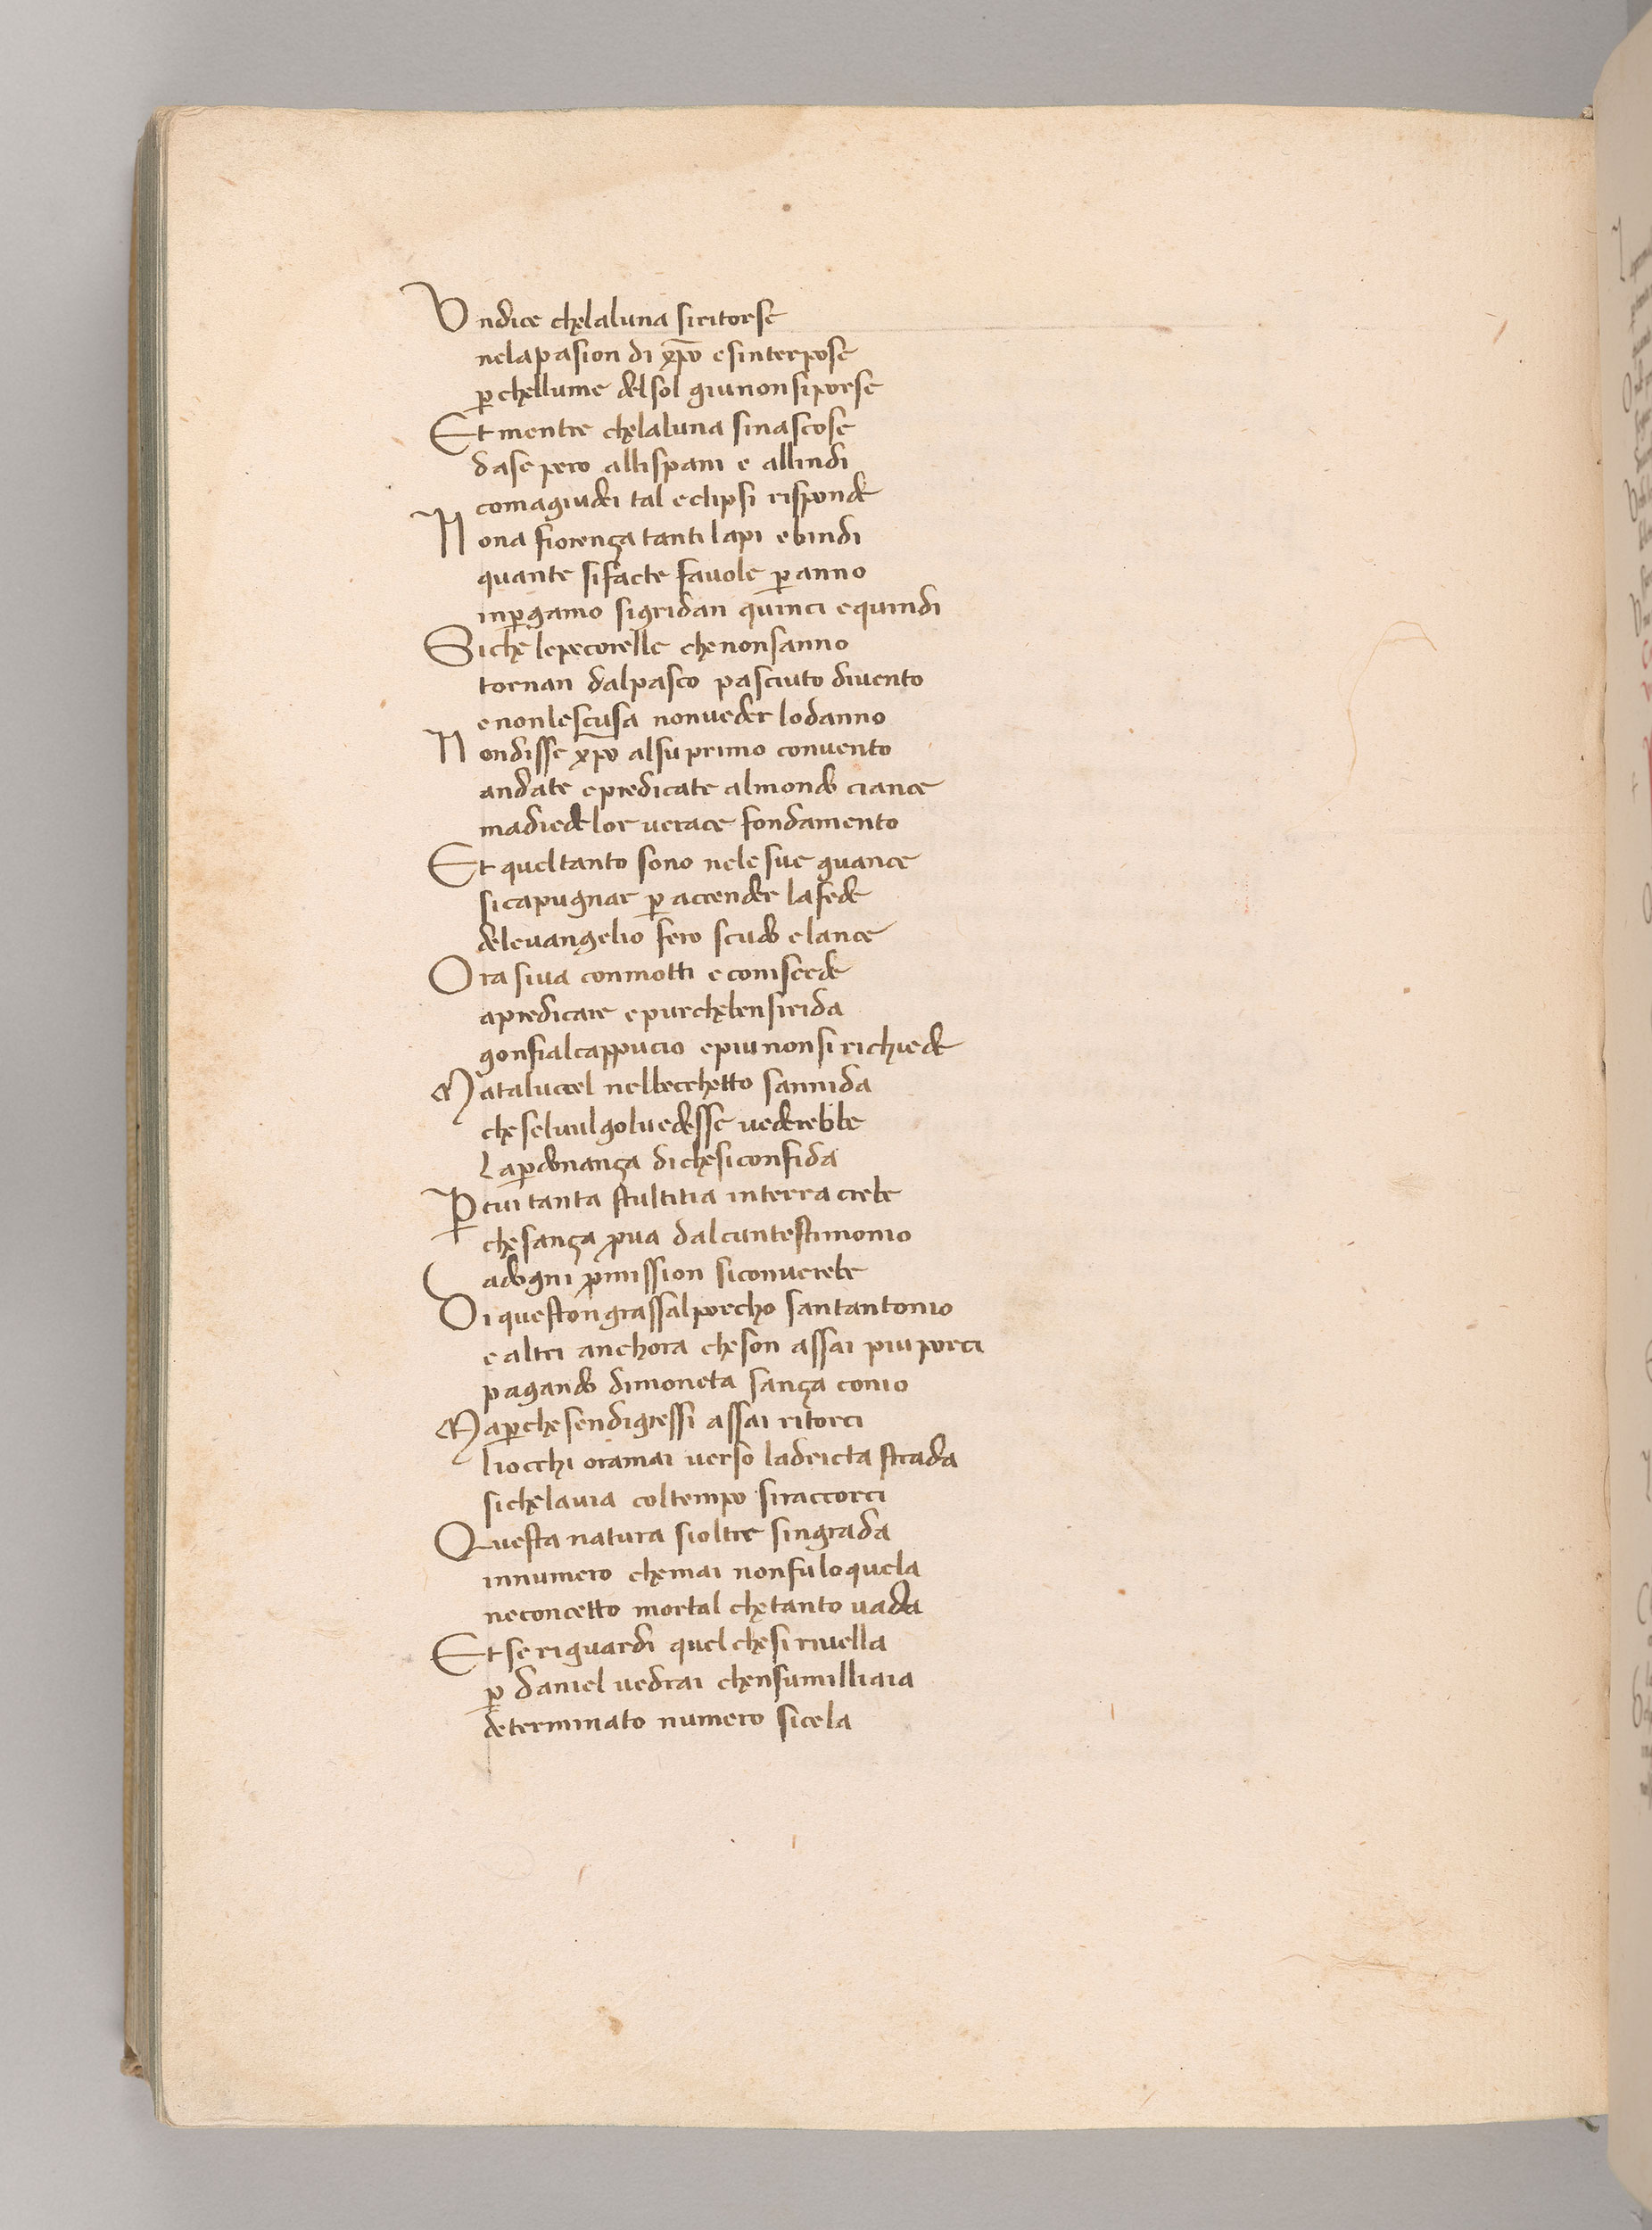 Vndice chelaluna siritorse
nelapasion di xp̄o esinterpose
p̱chellume delsol giunonsiporse
Et mentre chelaluna sinascose
dase pero allispani e allindi
comagiudei tal eclipsi risponde
Nona fiorença tanti lapi ebindi
quante sifacte fauole p̱ anno
inp̱gamo sigridan quinci equindi
Siche lepecorelle chenonsanno
tornan dalpasco pasciuto diuento
enonlescusa nonueder lodanno
Nondisse xp̄o alsuprimo conuento
andate epredicate almondo ciance
madiede lor uerace fondamento
Et queltanto sono nele sue guance
sicapugnar p̱ accender lafede
deleuangelio fero scudo elance
Ora siua conmotti e coniscede
apredicare epurchebensirida
gonfialcappucio epiunonsi richiede
Mataluccel nelbecchetto sannida
cheseluulgoluedesse uederebbe
lap̱donança dichesiconfida
P̱ cui tanta stultitia interra crebe
chesança ꝓua dalcuntestimonio
adogni ꝓmission siconuerebe
Di questongrassalporcho santantonio
e altri anchora cheson assai piuporci
pagando dimoneta sança conio
Map̱chesendigressi assai ritorci
liocchi oramai uerso ladricta strada
sichelauia coltempo siraccorci
Questa natura sioltre singrada
innumero chemai nonfuloquela
neconcetto mortal chetanto uada
Et se riguardi quel chesi riuella
p̱ daniel uedrai chensumilliaia
determinato numero sicela